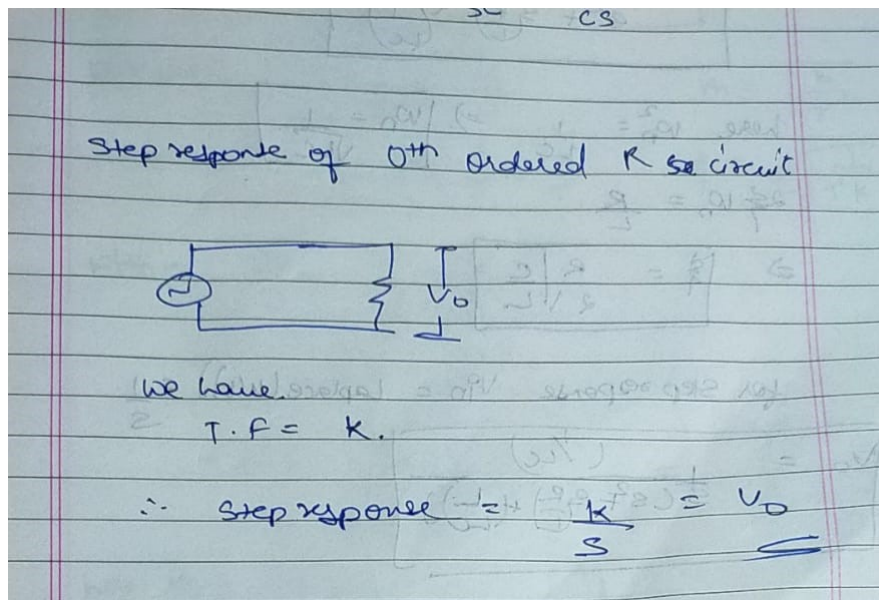 CS
Step response of 0th ordered R circuit
Vo
we have
T.F = K.
∴ Step response = K/S = Vo